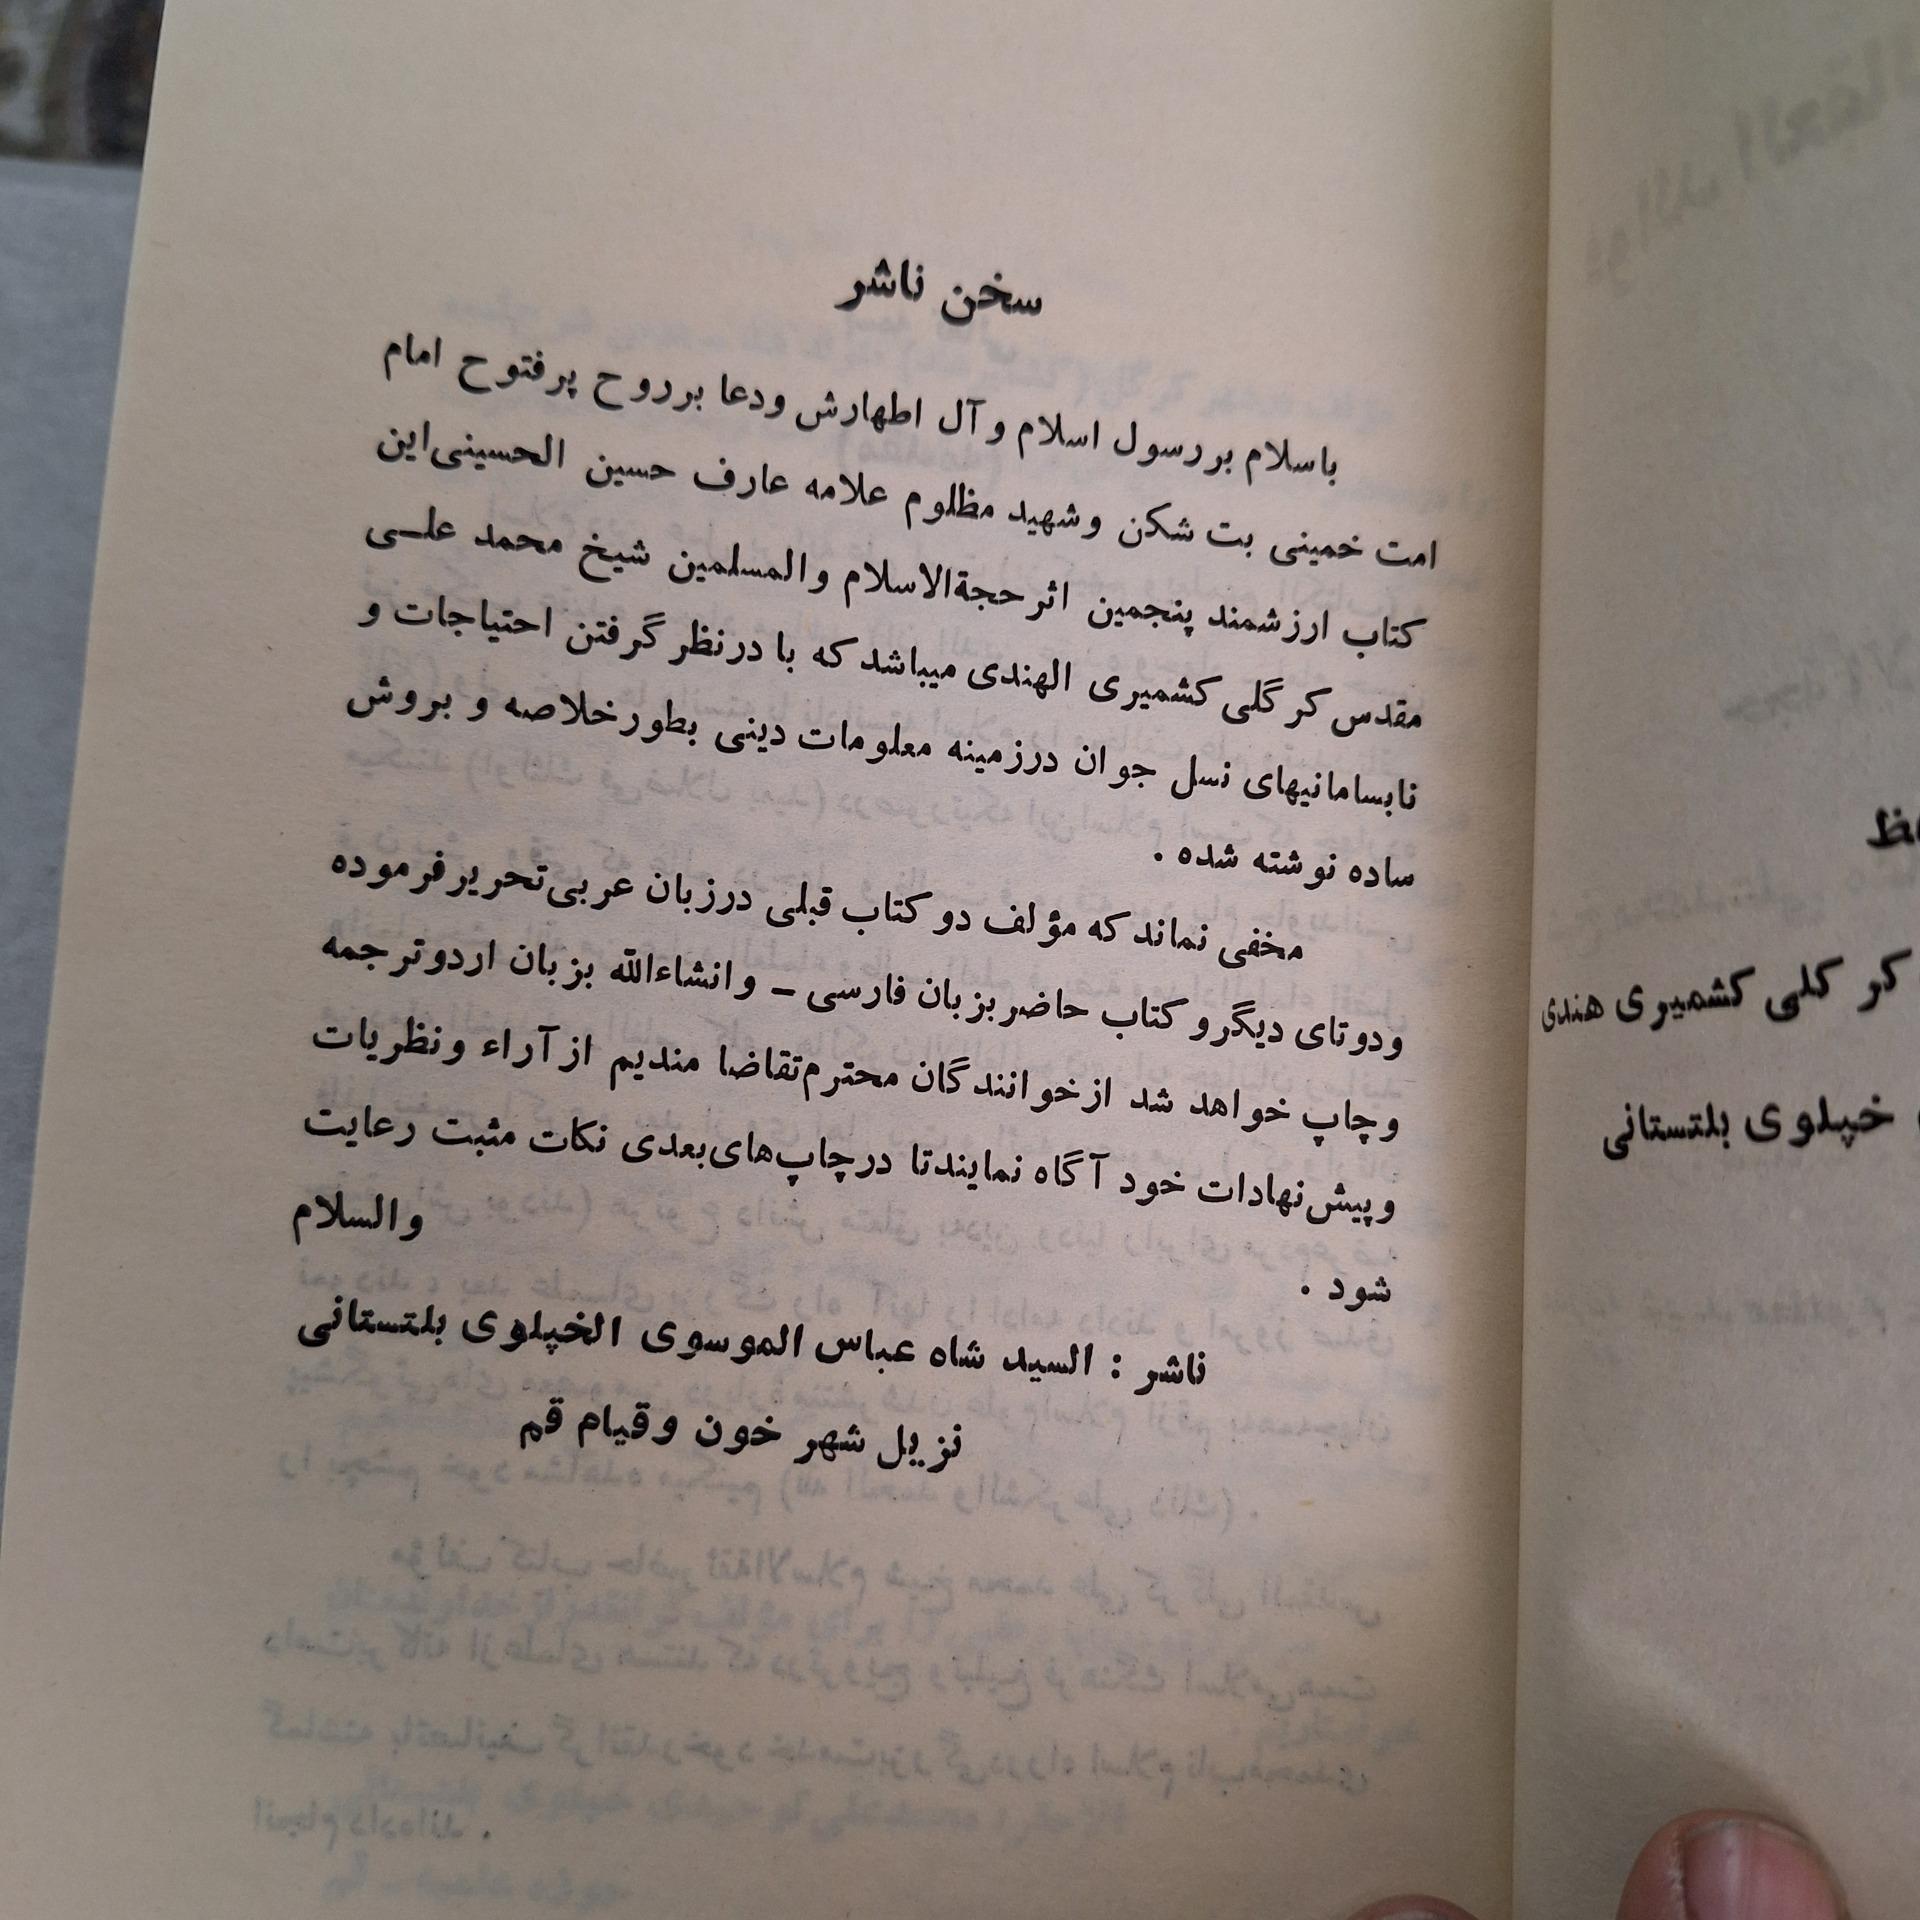 سخن ناشر
باسلام بررسول اسلام وآل اطهارش ودعا برروح پرفتوح امام
امت خمینی بت شکن وشهید مظلوم علامه عارف حسین الحسینی‌این
کتاب ارزشمند پنجمین اثرحجةالاسلام والمسلمین شیخ محمد علـی
مقدس کرگلی کشمیری الهندی میباشدکه با درنظرگرفتن احتیاجات و
نابسامانیهای نسل جوان درزمینه معلومات دینی بطورخلاصه و بروش
ساده نوشته شده .
مخفی نماندکه مؤلف دوکتاب قبلی درزبان عربی‌تحریرفرموده
ودوتای دیگروکتاب حاضربزبان فارسی – وانشاءالله بزبان اردوترجمه
وچاپ خواهد شد ازخوانندگان محترم‌تقاضا مندیم ازآراء ونظریات
وپیش‌نهادات خود آگاه نمایندتا درچاپ‌های‌بعدی نکات مثبت رعایت
شود .
والسلام
ناشر : السید شاه عباس الموسوی الخپلوی بلتستانی
نزیل شهر خون وقیام قم
کر کلی کشمیری هندی
خپلوی بلتستانی